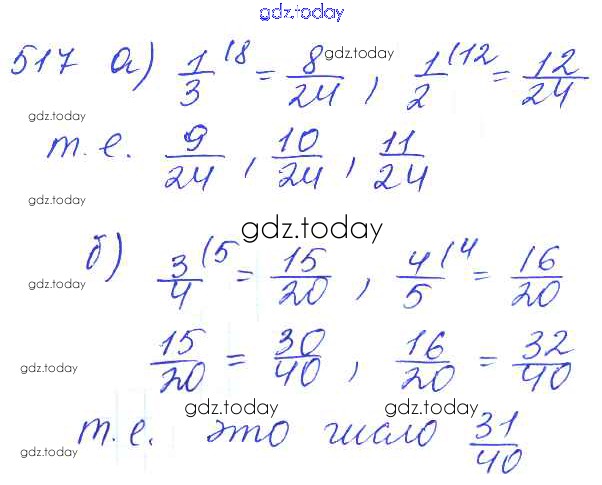 gdz.today
517 а) 1/3 (8 = 8/24, 1/2 (12 = 12/24
gdz.today
gdz.today
т.е. 9/24, 10/24, 11/24
gdz.today
gdz.today
б) 3/4 (5 = 15/20, 4/5 (4 = 16/20
gdz.today
15/20 = 30/40, 16/20 = 32/40
gdz.today
gdz.today gdz.today
т.е. это число 31/40
gdz.today